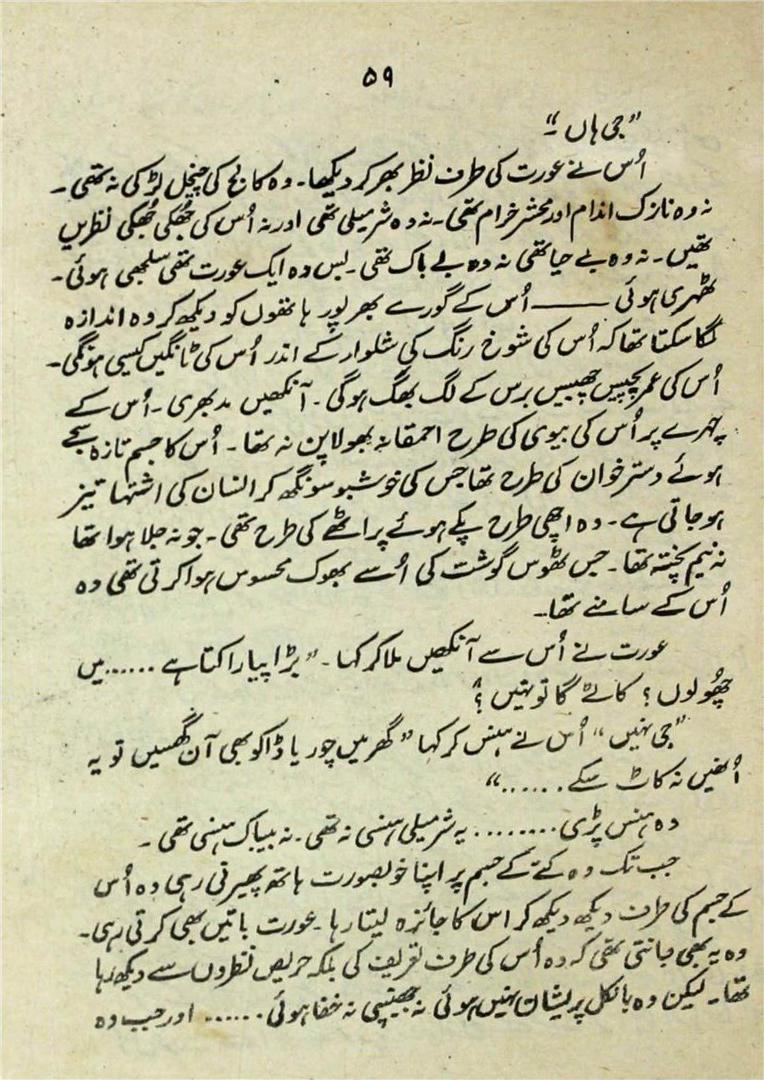 ۵۹
”جی ہاں“۔
اُس نے عورت کی طرف نظر بھر کر دیکھا۔ وہ کالج کی چنچل لڑکی نہ تھی۔
نہ وہ نازک اندام اور محشر خرام تھی۔ نہ وہ شرمیلی تھی اور نہ اُس کی جُھکی جُھکی نظریں
تھیں۔ نہ وہ بے حیا تھی نہ وہ بے باک تھی۔ بس وہ ایک عورت تھی سلجھی ہوئی۔
ٹھہری ہوئی ——— اُس کے گورے بھرپور ہاتھوں کو دیکھ کر وہ اندازہ
لگا سکتا تھا کہ اُس کی شوخ رنگ کی شلوار کے اندر اُس کی ٹانگیں کیسی ہونگی۔
اُس کی عمر پچیس چھبیس برس کے لگ بھگ ہوگی۔ آنکھیں مدبھری۔ اُس کے
چہرے پر اُس کی بیوی کی طرح احمقانہ بھولا پن نہ تھا۔ اُس کا جسم تازہ سجے
ہوئے دسترخوان کی طرح تھا جس کی خوشبو سونگھ کر انسان کی اشتہا تیز
ہو جاتی ہے۔ وہ اچھی طرح پکے ہوئے پراٹھے کی طرح تھی۔ جو نہ جلا ہوا تھا
نہ نیم پختہ تھا۔ جس ٹھوس گوشت کی اُسے بھوک محسوس ہوا کرتی تھی وہ
اُس کے سامنے تھا۔
عورت نے اُس سے آنکھیں ملا کر کہا۔ ”بڑا پیارا کتا ہے ...... میں
چُھو لوں؟ کاٹے گا تو نہیں؟“
”جی نہیں“ اُس نے ہنس کر کہا ”گھر میں چور یا ڈاکو بھی آن گُھسیں تو یہ
اُنھیں نہ کاٹ سکے ......“
وہ ہنس پڑی ........ یہ شرمیلی ہنسی نہ تھی۔ نہ بیباک ہنسی تھی۔
جب تک وہ کتے کے جسم پر اپنا خوبصورت ہاتھ پھیرتی رہی وہ اُس
کے جسم کی طرف دیکھ دیکھ کر اس کا جائزہ لیتا رہا۔ عورت باتیں بھی کرتی رہی۔
وہ یہ بھی جانتی تھی کہ وہ اُس کی طرف تعریف کی بلکہ حریص نظروں سے دیکھ رہا
تھا۔ لیکن وہ بالکل پریشان نہیں ہوئی نہ جھینپی نہ خفا ہوئی ...... اور جب وہ